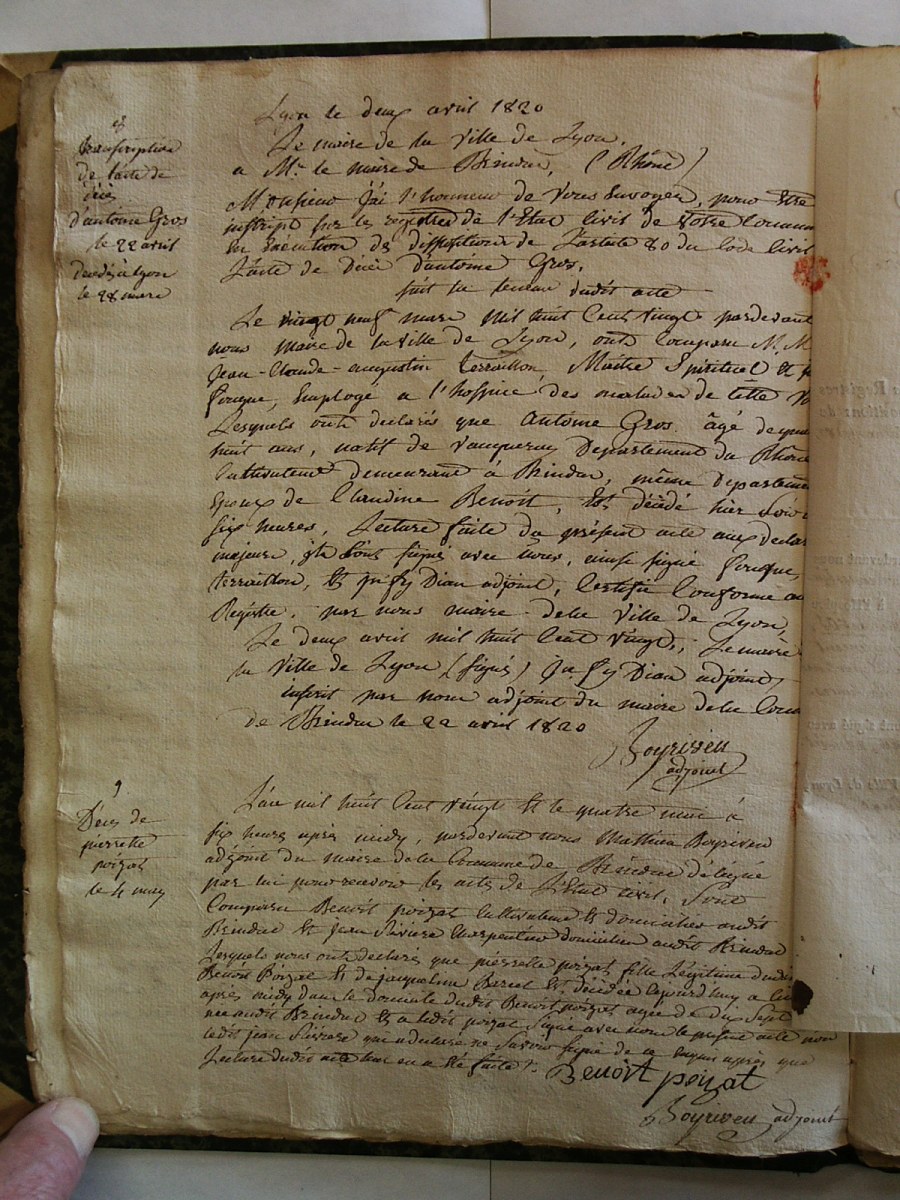 8
transcription
de l'acte de
décès
d'antoine Gros
le 22 avril
décédé à Lyon
le 28 mars
Lyon le deux avril 1820
Le maire de la ville de Lyon,
a Mr. le maire de Brindas, (Rhône)
Monsieur j'ai l'honneur de vous Envoyer, pour Etre
inscript sur les registres de l'Etat Civil de votre Commun
En Exécution des dispositions de l'article 80 du Code Civil
L'acte de Décè d'antoine Gros,
suit la teneur dudit acte
Le vingt neuf mars mil huit Cent vingt pardevant
nous maire de la ville de Lyon, ont Comparu M.M.
Jean-Claude-augustin terraillon, Maitre Spirituel Et
fouque, Employé a l'hospice des malades de Cette
Lesquels ont declarés que Antoine Gros âgé de
huit ans, natif de vaugneray Département du Rhône
Cultivateur demeurant à Brindas, même Departeme
Epoux de Claudine Benoit, Est décédé hier Soir
six heures, Lecture faite du présent acte aux declar
majeurs, ils l'ont signés avec nous, ainsi signé fouque,
terraillon, Et Dian adjoint, Certifié Conforme au
Registre, par nous maire de la Ville de Lyon,
Le deux avril mil huit Cent vingt, Le maire
la Ville de Lyon (signé) Dian adjoint,
inscrit par nous adjoint du maire de la Com
de Brindas le 22 avril 1820
Boyriven
adjoint
9
Deces de
pierrette
poizat
le 4 may
L'an mil huit Cent vingt Et le quatre mai à
six heures après midy, pardevant nous Mathieu Boyriven
adjoint du maire de la Commune de Brindas délégué
par lui pour recevoir les actes de l'Etat Civil, Sont
Comparu Benoit poizat Cultivateur Et domicilié audit
Brindas Et jean Riviere Charpentier domicilié audit Brindas
Lesquels nous ont declarés que pierrette poizat fille Légitime dudit
Benoit Poizat Et de jacqueline Est décédée aujourd'huy a
après midy dans le domicile dudit Benoit poizat agée de dix Sept
née audit Brindas Et a ledit poizat Signé avec nous le présent acte non
ledit jean Riviere qui a declaré ne Savoir Signé de ce enquis après que
Lecture dudit acte leur en a été faite
Benoit poizat
Boyriven adjoint